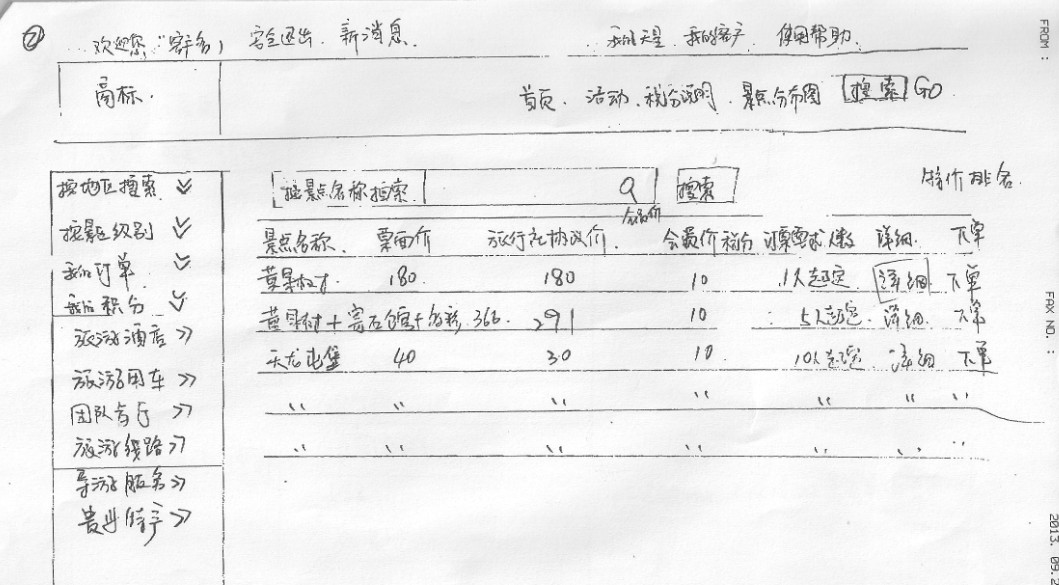 ② 欢迎您,"客户名" 安全退出 新消息. 使用帮助.
商标. 首页. 活动. 积分说明. 景点分布图 搜索 GO
按地区搜索 按景点名称搜索 搜索 特价排名
按景区级别 会员价
景点名称. 票面价 旅行社协议价. 会员价积分 订票要求人数 详细. 下单
我的订单 黄果树 180. 180 10 1人起定 详细 下单
我的积分
黄果树+ 366. 291 10 5人起定 详细. 下单
旅游酒店 天龙屯堡 40 30 10. 10人起定 详细 下单
旅游用车 " " " " " " "
团队餐厅
旅游线路 " " " " " " "
导游服务
特产
FROM :
FAX NO. :
2013. 09. 2